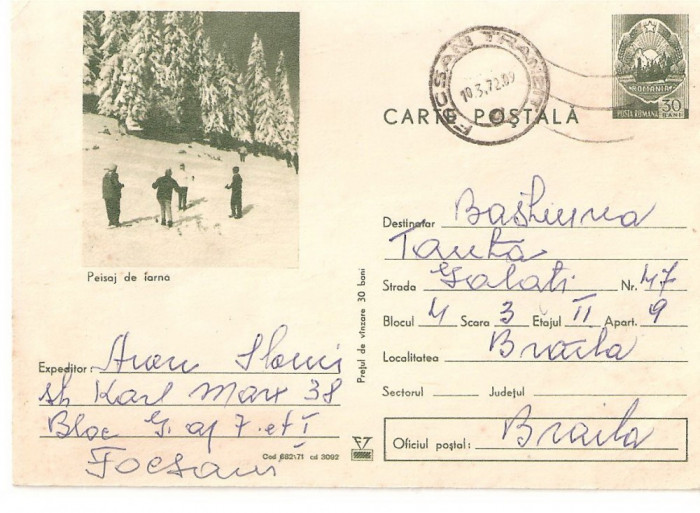 FOCSANI TRANZIT
10.3.72.09
ROMÂNIA
POSTA ROMANA 30 BANI
CARTE POȘTALĂ
Peisaj de iarna
Destinatar
Tanta
Strada Galati Nr. 47
Blocul 4 Scara 3 Etajul II Apart. 9
Localitatea Braila
Sectorul Județul
Oficiul poștal: Braila
Prețul de vînzare 30 bani
Expeditor: Aron
str Karl Marx 38
Bloc G. ap 7. et I
Focsani
Cod 682/71 cd 3092